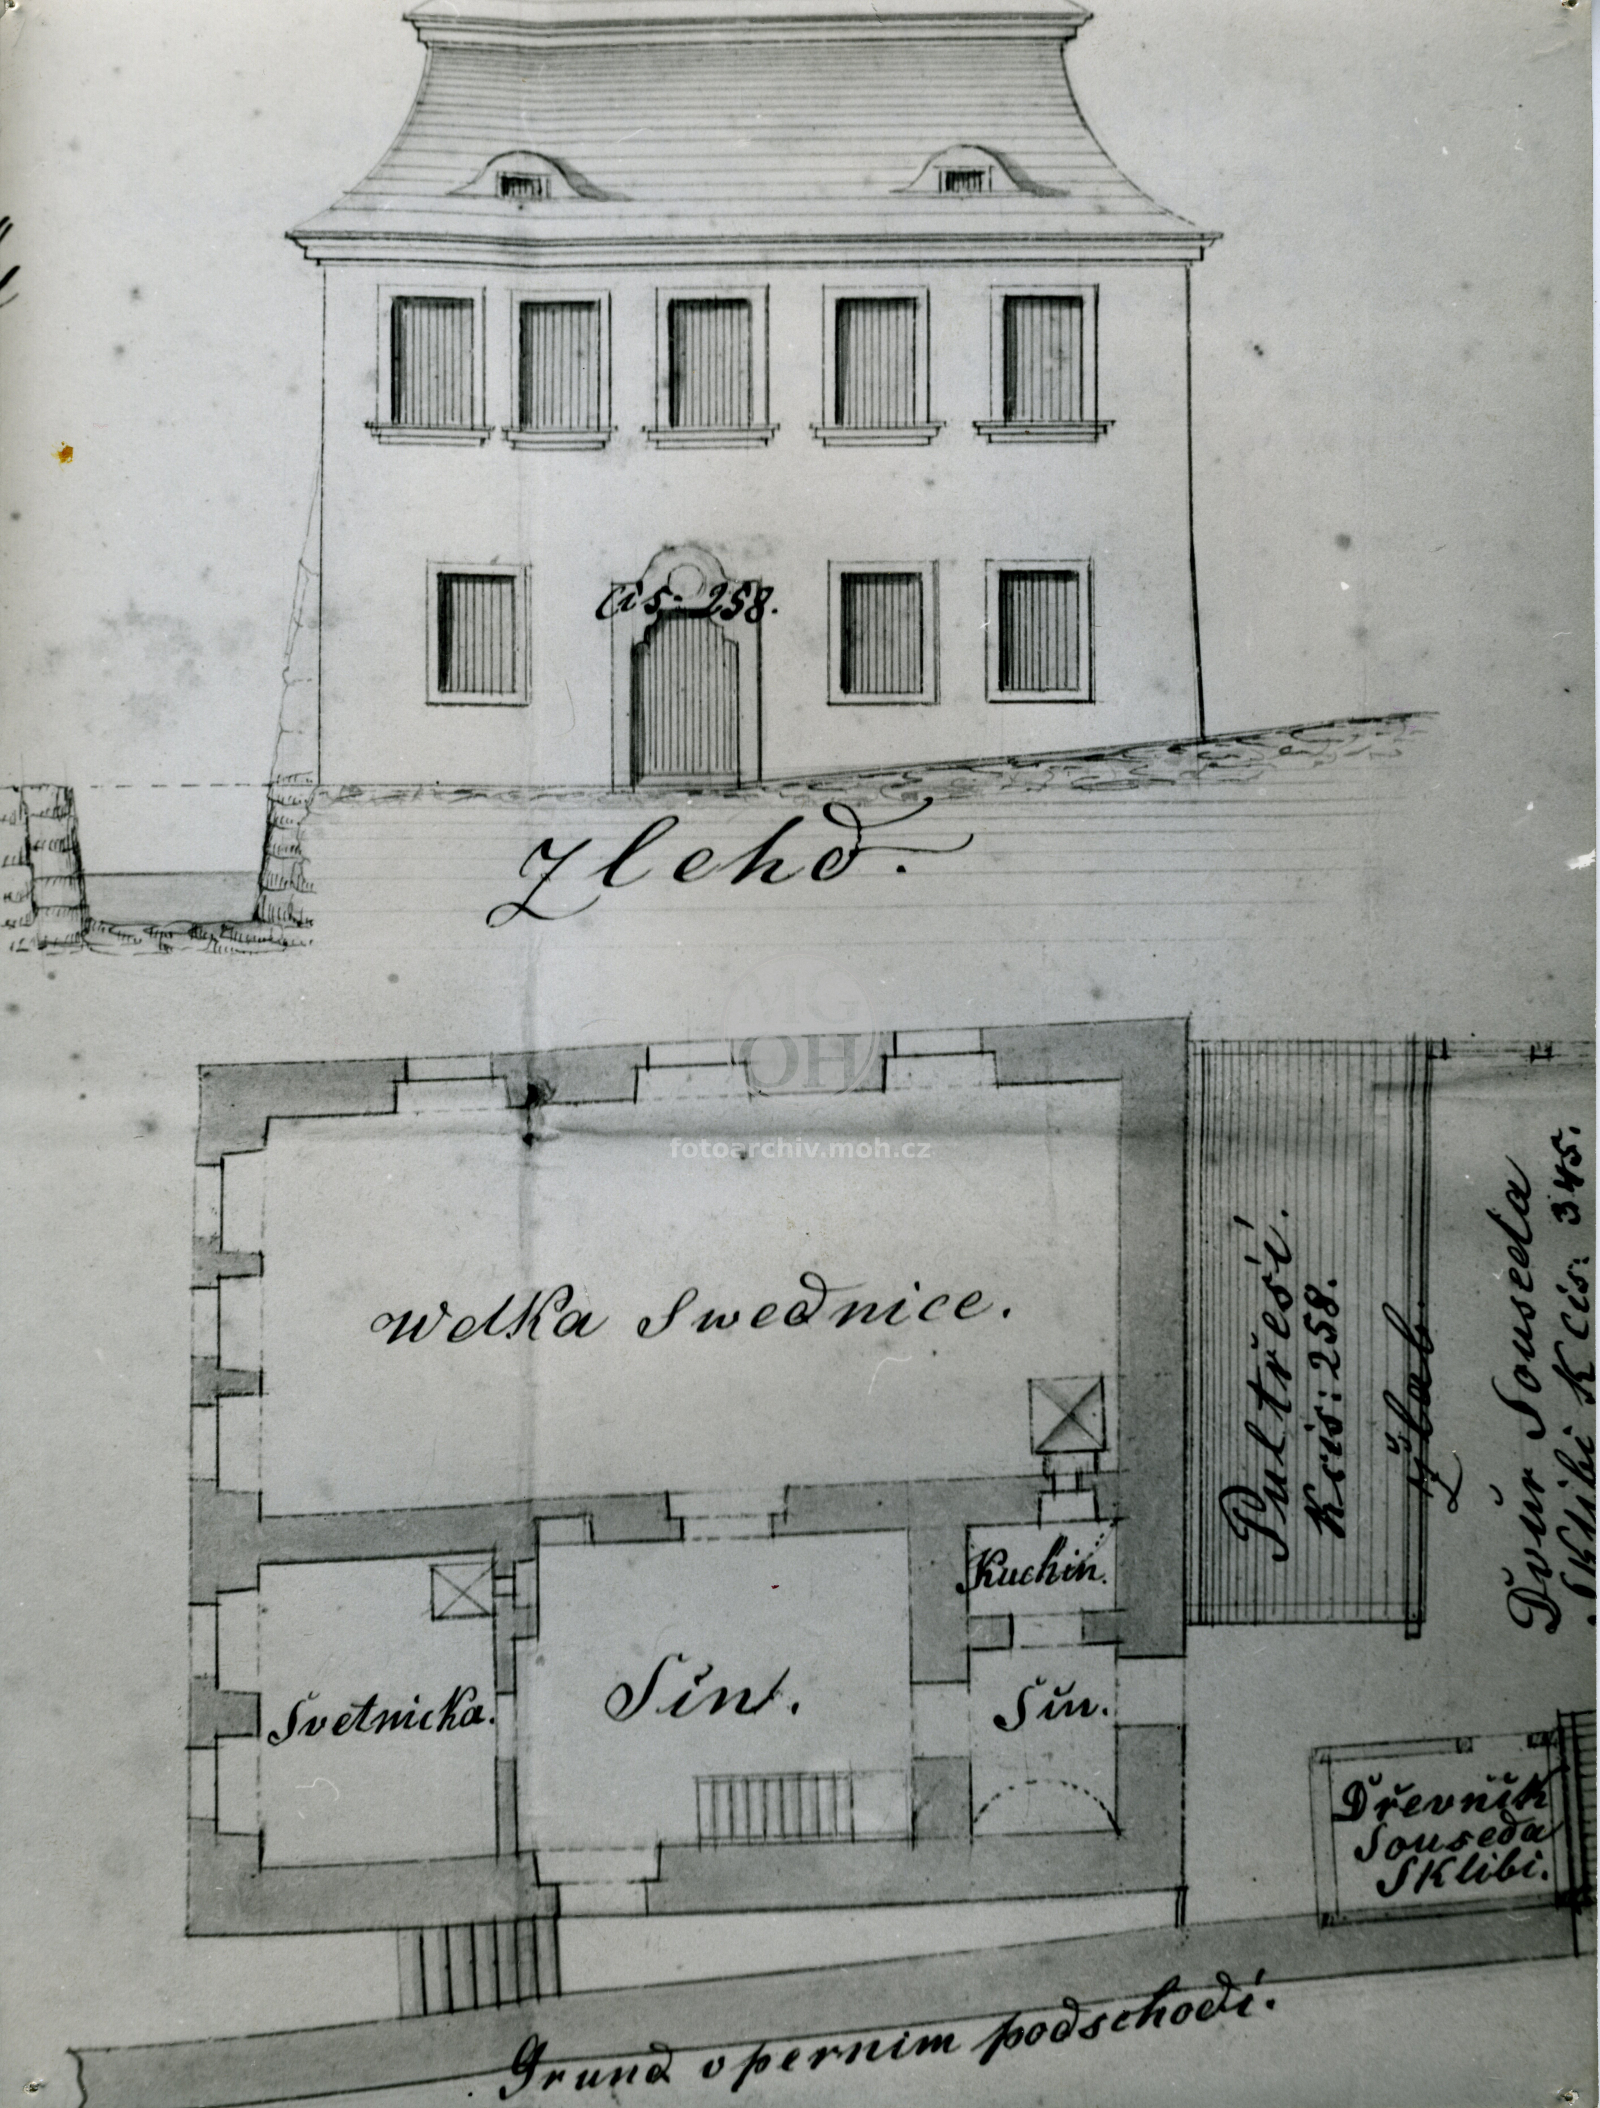 Čis: 258.
Zlehd.
MG
OH
fotoarchiv.moh.cz
Welka Swednice.
Pultřesí.
K čis: 258.
žlab
Dvůr Souseda
Sklibi K Čis: 345.
Kuchin.
Svetnicka.
Siň.
Siň.
Dřevnik
Souseda
Sklibi.
Grund v pernim podschodí.